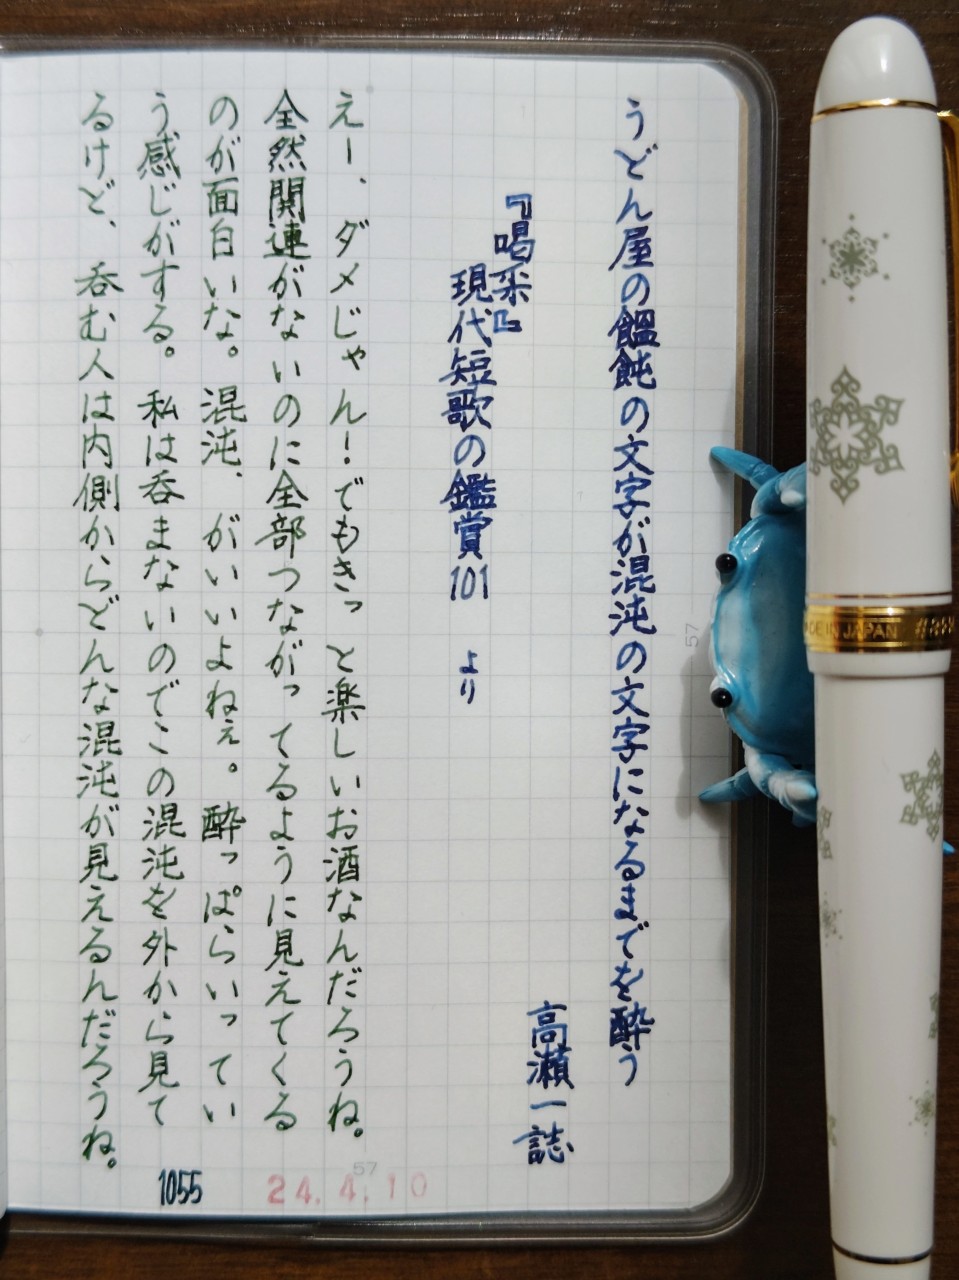 うどん屋の饂飩の文字が混沌の文字になるまでを酔う
高瀬一誌
『喝采』
現代短歌の鑑賞101 より
えー、ダメじゃん!でもきっと楽しいお酒なんだろうね。
全然関連がないのに全部つながってるように見えてくる
のが面白いな。混沌、がいいよねぇ。酔っぱらいってい
う感じがする。私は呑まないのでこの混沌を外から見て
るけど、呑む人は内側からどんな混沌が見えるんだろうね。
1055
24.4.10
57
57
MADE IN JAPAN